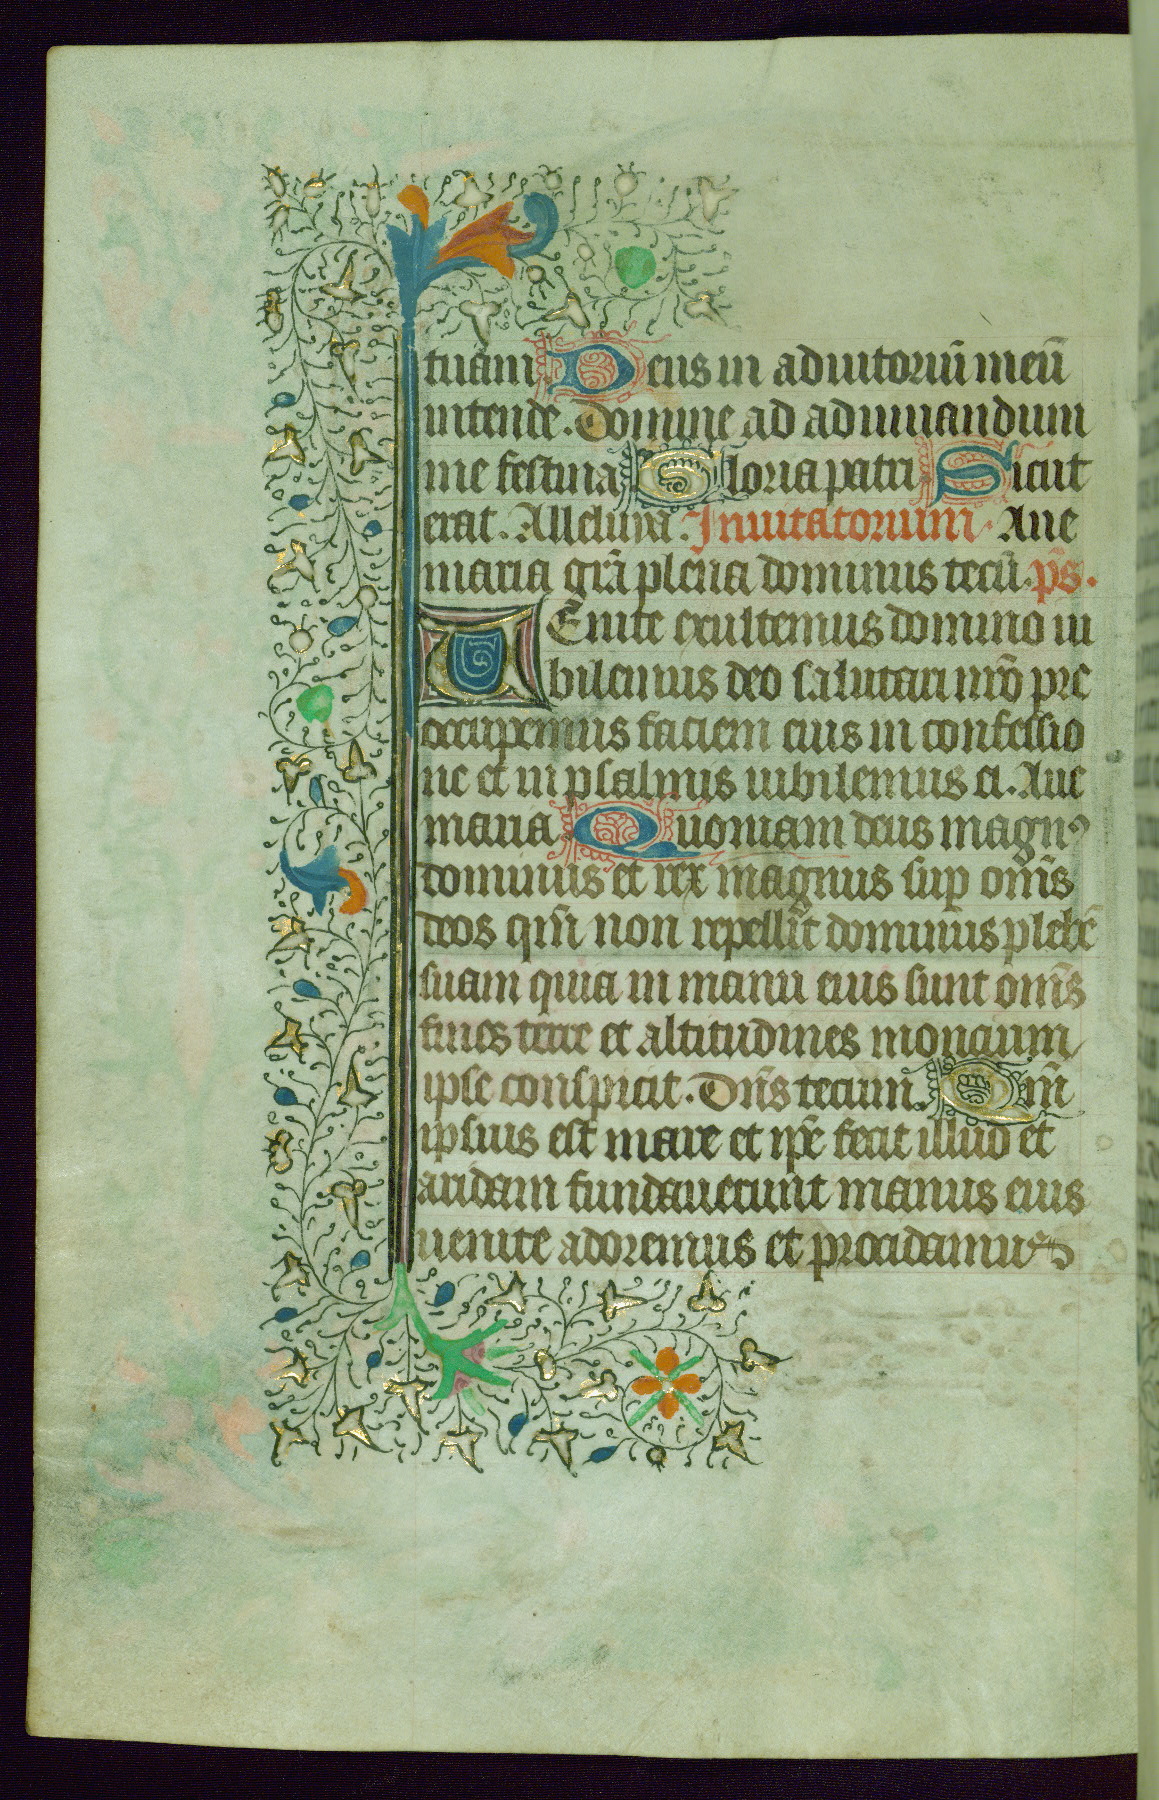 tuam Deus in adiutoriū meū
intende. Domine ad adiuuandum
me festina Gloria patri Sicut
erat. Alleluya. Inuitatorium. Aue
maria grā plena dominus tecū. ps̄.
VEnite exultemus domino iu
bilemus deo salutari nr̄o pre
occupemus faciem eius in confessio
ne et in psalmis iubilemus ei. Aue
maria Quoniam deus magnꝰ
dominus et rex magnus sup om̄s
deos qm̄ non repellit dominus plebē
suam quia in manu eius sunt om̄s
fines terre et altitudines moncium
ipse conspicit. Dn̄s tecum. Qm̄
ipsius est mare et ip̄e fecit illud et
aridam fundauerunt manus eius
uenite adoremus et procidamus